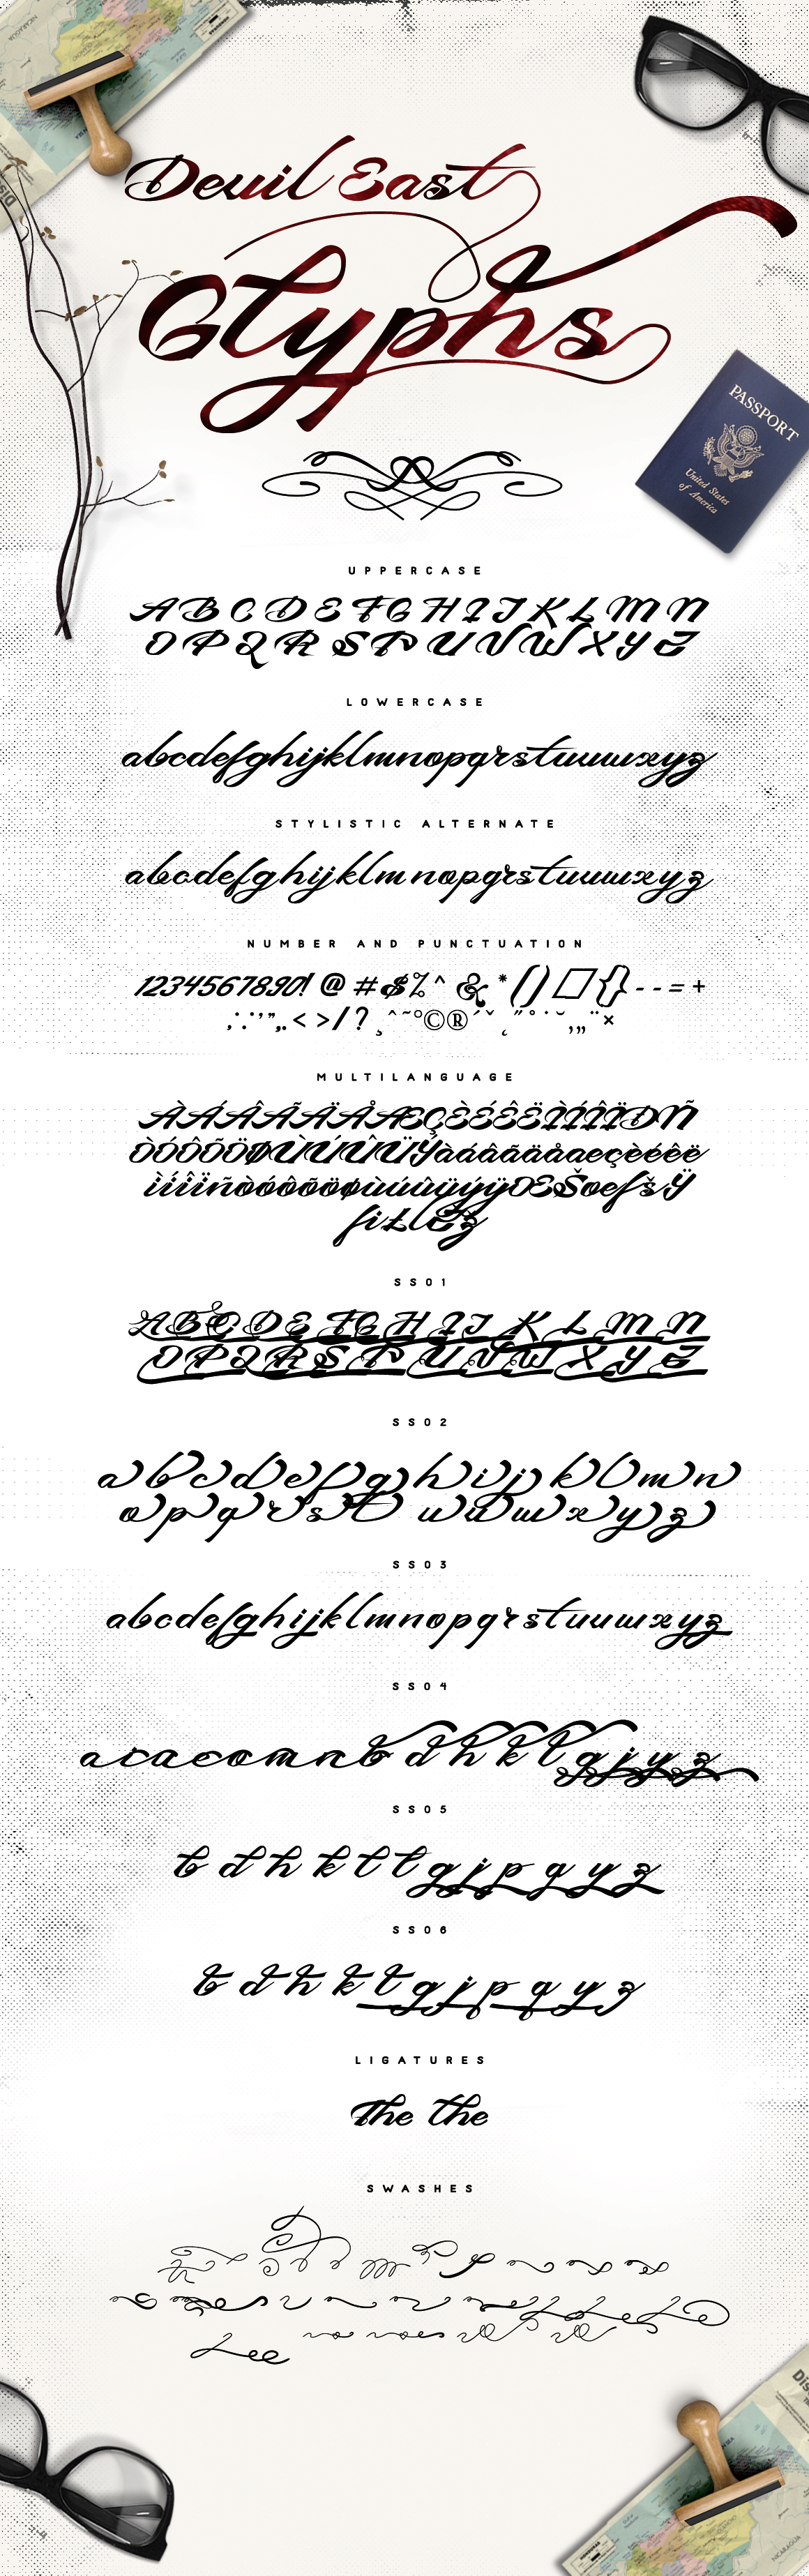 Devil East
Glyphs
PASSPORT
United States
of America
UPPERCASE
A B C D E F G H I J K L M N
O P Q R S T U V W X Y Z
LOWERCASE
abcdefghijklmnopqrstuvwxyz
STYLISTIC ALTERNATE
abcdefghijklmnopqrstuvwxyz
NUMBER AND PUNCTUATION
1234567890! @ # $ % ^ & * ( ) [ ] { } - - = +
< > / ? © ®
MULTILANGUAGE
ÀÁÂÃÄÅÆÇÈÉÊËÌÍÎÏÐÑ
ÒÓÔÕÖØÙÚÛÜÝàáâãäåæçèéêë
ìíîïñòóôõöøùúûüýÿŒŠœfšŸ
SS01
A B C D E F G H I J K L M N
O P Q R S T U V W X Y Z
SS02
a b c d e f g h i j k l m n
o p q r s t u v w x y z
SS03
abcdefghijklmnopqrstuvwxyz
SS04
SS05
b d h k l t g j p q y z
SS06
b d h k t g j p q y z
LIGATURES
The the
SWASHES
NICARAGUA